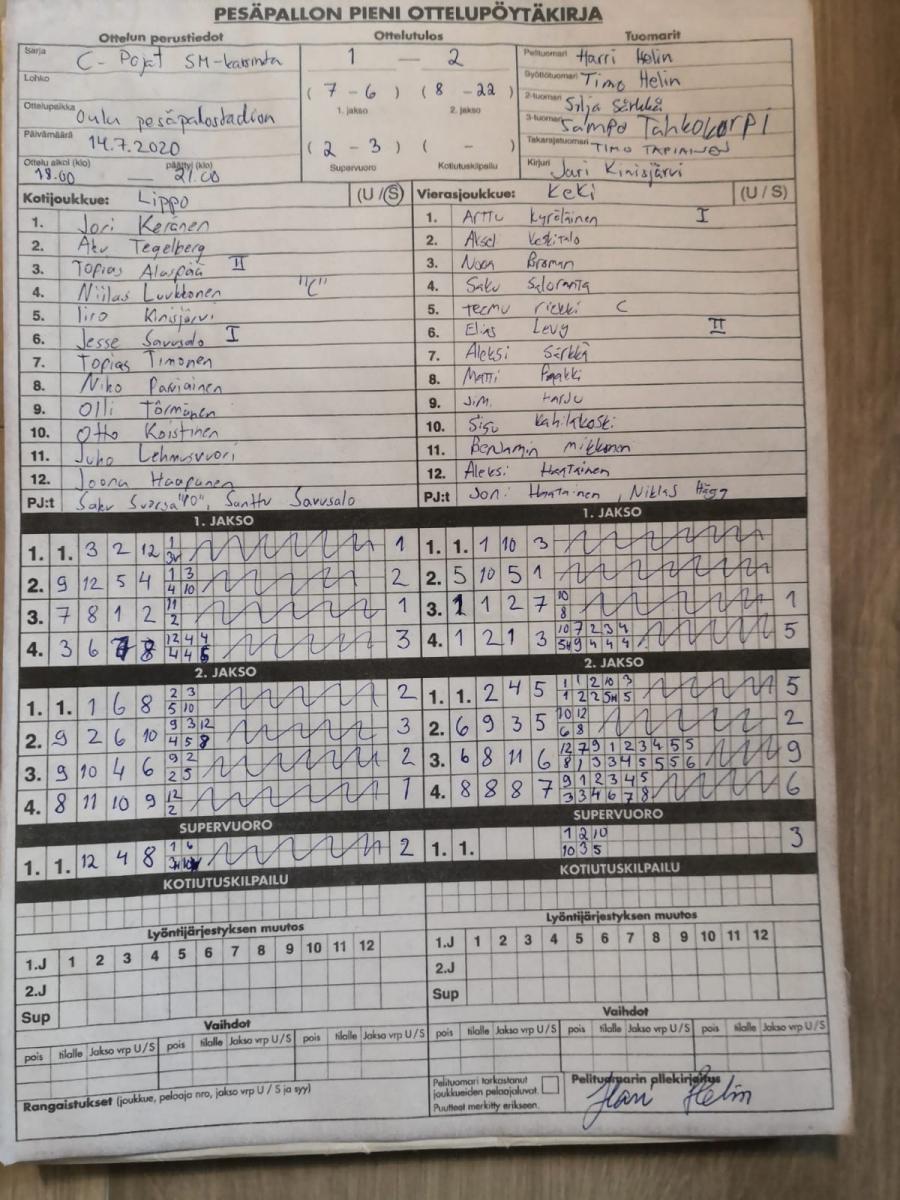 PESÄPALLON PIENI OTTELUPÖYTÄKIRJA
Ottelun perustiedot Ottelutulos Tuomarit
Sarja C-Pojat SM-karsinta 1 — 2 Pelituomari Harri Helin
Lohko ( 7 - 6 ) ( 8 - 22 ) Syöttötuomari Timo Helin
1. jakso 2. jakso 2-tuomari Silja Särkkä
Ottelupaikka Oulu pesäpallostadion 3-tuomari Sampo Tahkokorpi
Päivämäärä 14.7.2020 ( 2 - 3 ) ( - ) Takarajatuomari TIMO TAPIAINEN
Ottelu alkoi (klo) päättyi (klo) Supervuoro Kotiutuskilpailu Kirjuri Jari Kinisjärvi
18.00 — 21.00
Kotijoukkue: Lippo (U / S) Vierasjoukkue: KeKi (U / S)
1. Jori Keränen 1. Arttu Kyröläinen I
2. Aku Tegelberg 2. Aksel Keskitalo
3. Topias Alaspää II 3. Noa Broman
4. Niilas Luukkonen "C" 4. Saku Saloranta
5. Iiro Kinisjärvi 5. Teemu C
6. Jesse Savusalo I 6. Elias Levy II
7. Topias Timonen 7. Aleksi Särkkä
8. Niko Parviainen 8. Matti
9. Olli Törmänen 9. Harju
10. Otto Koistinen 10. Sisu Kahilakoski
11. Juho Lehmusvuori 11. Benjamin Mikkonen
12. Joona Haapunen 12. Aleksi Hantainen
PJ:t Saku "PO", Santtu Savusalo PJ:t Joni Hantainen, Niklas Hägg
1. JAKSO 1. JAKSO
1. 1. 3 2 12 1 1. 1. 1 10 3
2. 9 12 5 4 1 3 2 2. 5 10 5 1
4 10
3. 7 8 1 2 11 1 3. 1 1 2 7 10 1
2 8
4. 3 6 7 8 12 4 4 3 4. 1 2 1 3 10 7 2 3 4 5
2. JAKSO 2. JAKSO
1. 1. 1 6 8 2 3 2 1. 1. 2 4 5 1 1 2 10 3 5
5 10
2. 9 2 6 10 9 3 12 3 2. 6 9 3 5 10 12 2
4 5 8 6 8
3. 9 10 4 6 9 2 2 3. 6 8 11 6 12 7 9 1 2 3 4 5 5 9
2 5 8 1 3 3 4 5 5 5 6
4. 8 11 10 9 12 1 4. 8 8 8 7 9 1 2 3 4 5 6
2 3 3 4 6 7 8
SUPERVUORO SUPERVUORO
1. 1. 12 4 8 1 6 2 1. 1. 1 2 10 3
10 3 5
KOTIUTUSKILPAILU KOTIUTUSKILPAILU
Lyöntijärjestyksen muutos Lyöntijärjestyksen muutos
1.J 1 2 3 4 5 6 7 8 9 10 11 12 1.J 1 2 3 4 5 6 7 8 9 10 11 12
2.J 2.J
Sup Sup
Vaihdot Vaihdot
pois tilalle Jakso vrp U / S pois tilalle Jakso vrp U / S pois tilalle Jakso vrp U / S pois tilalle Jakso vrp U / S pois tilalle Jakso vrp U / S pois tilalle Jakso vrp U / S
Rangaistukset (joukkue, pelaaja nro, jakso vrp U / S ja syy) Pelituomari tarkastanut joukkueiden pelaajaluvat. Pelituomarin allekirjoitus
Puutteet merkitty erikseen. Harri Helin